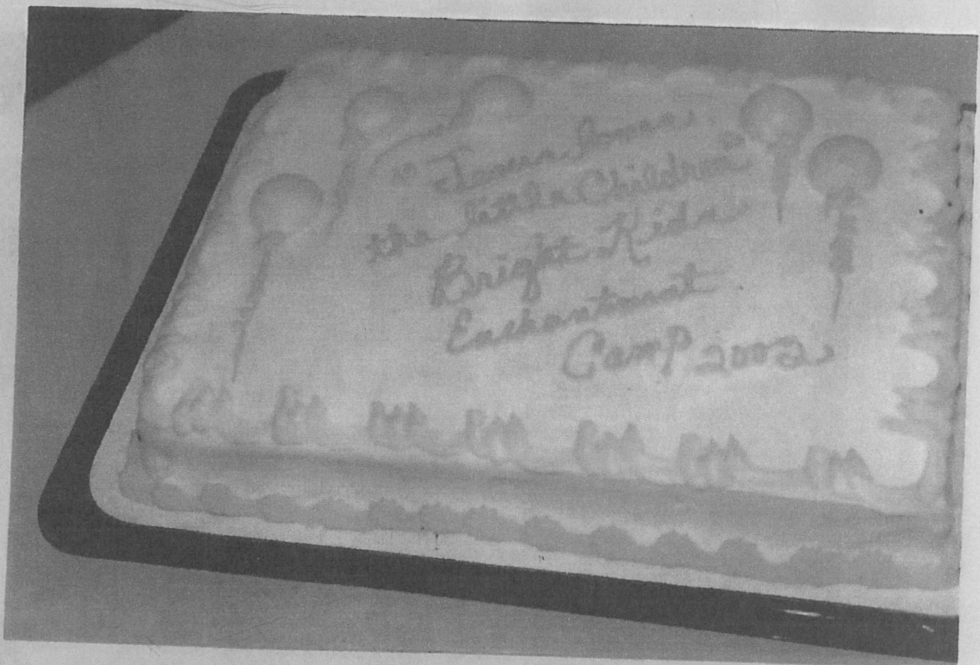 "Jesus loves
the little Children"
Bright Kids
Enchantment
Camp 2002